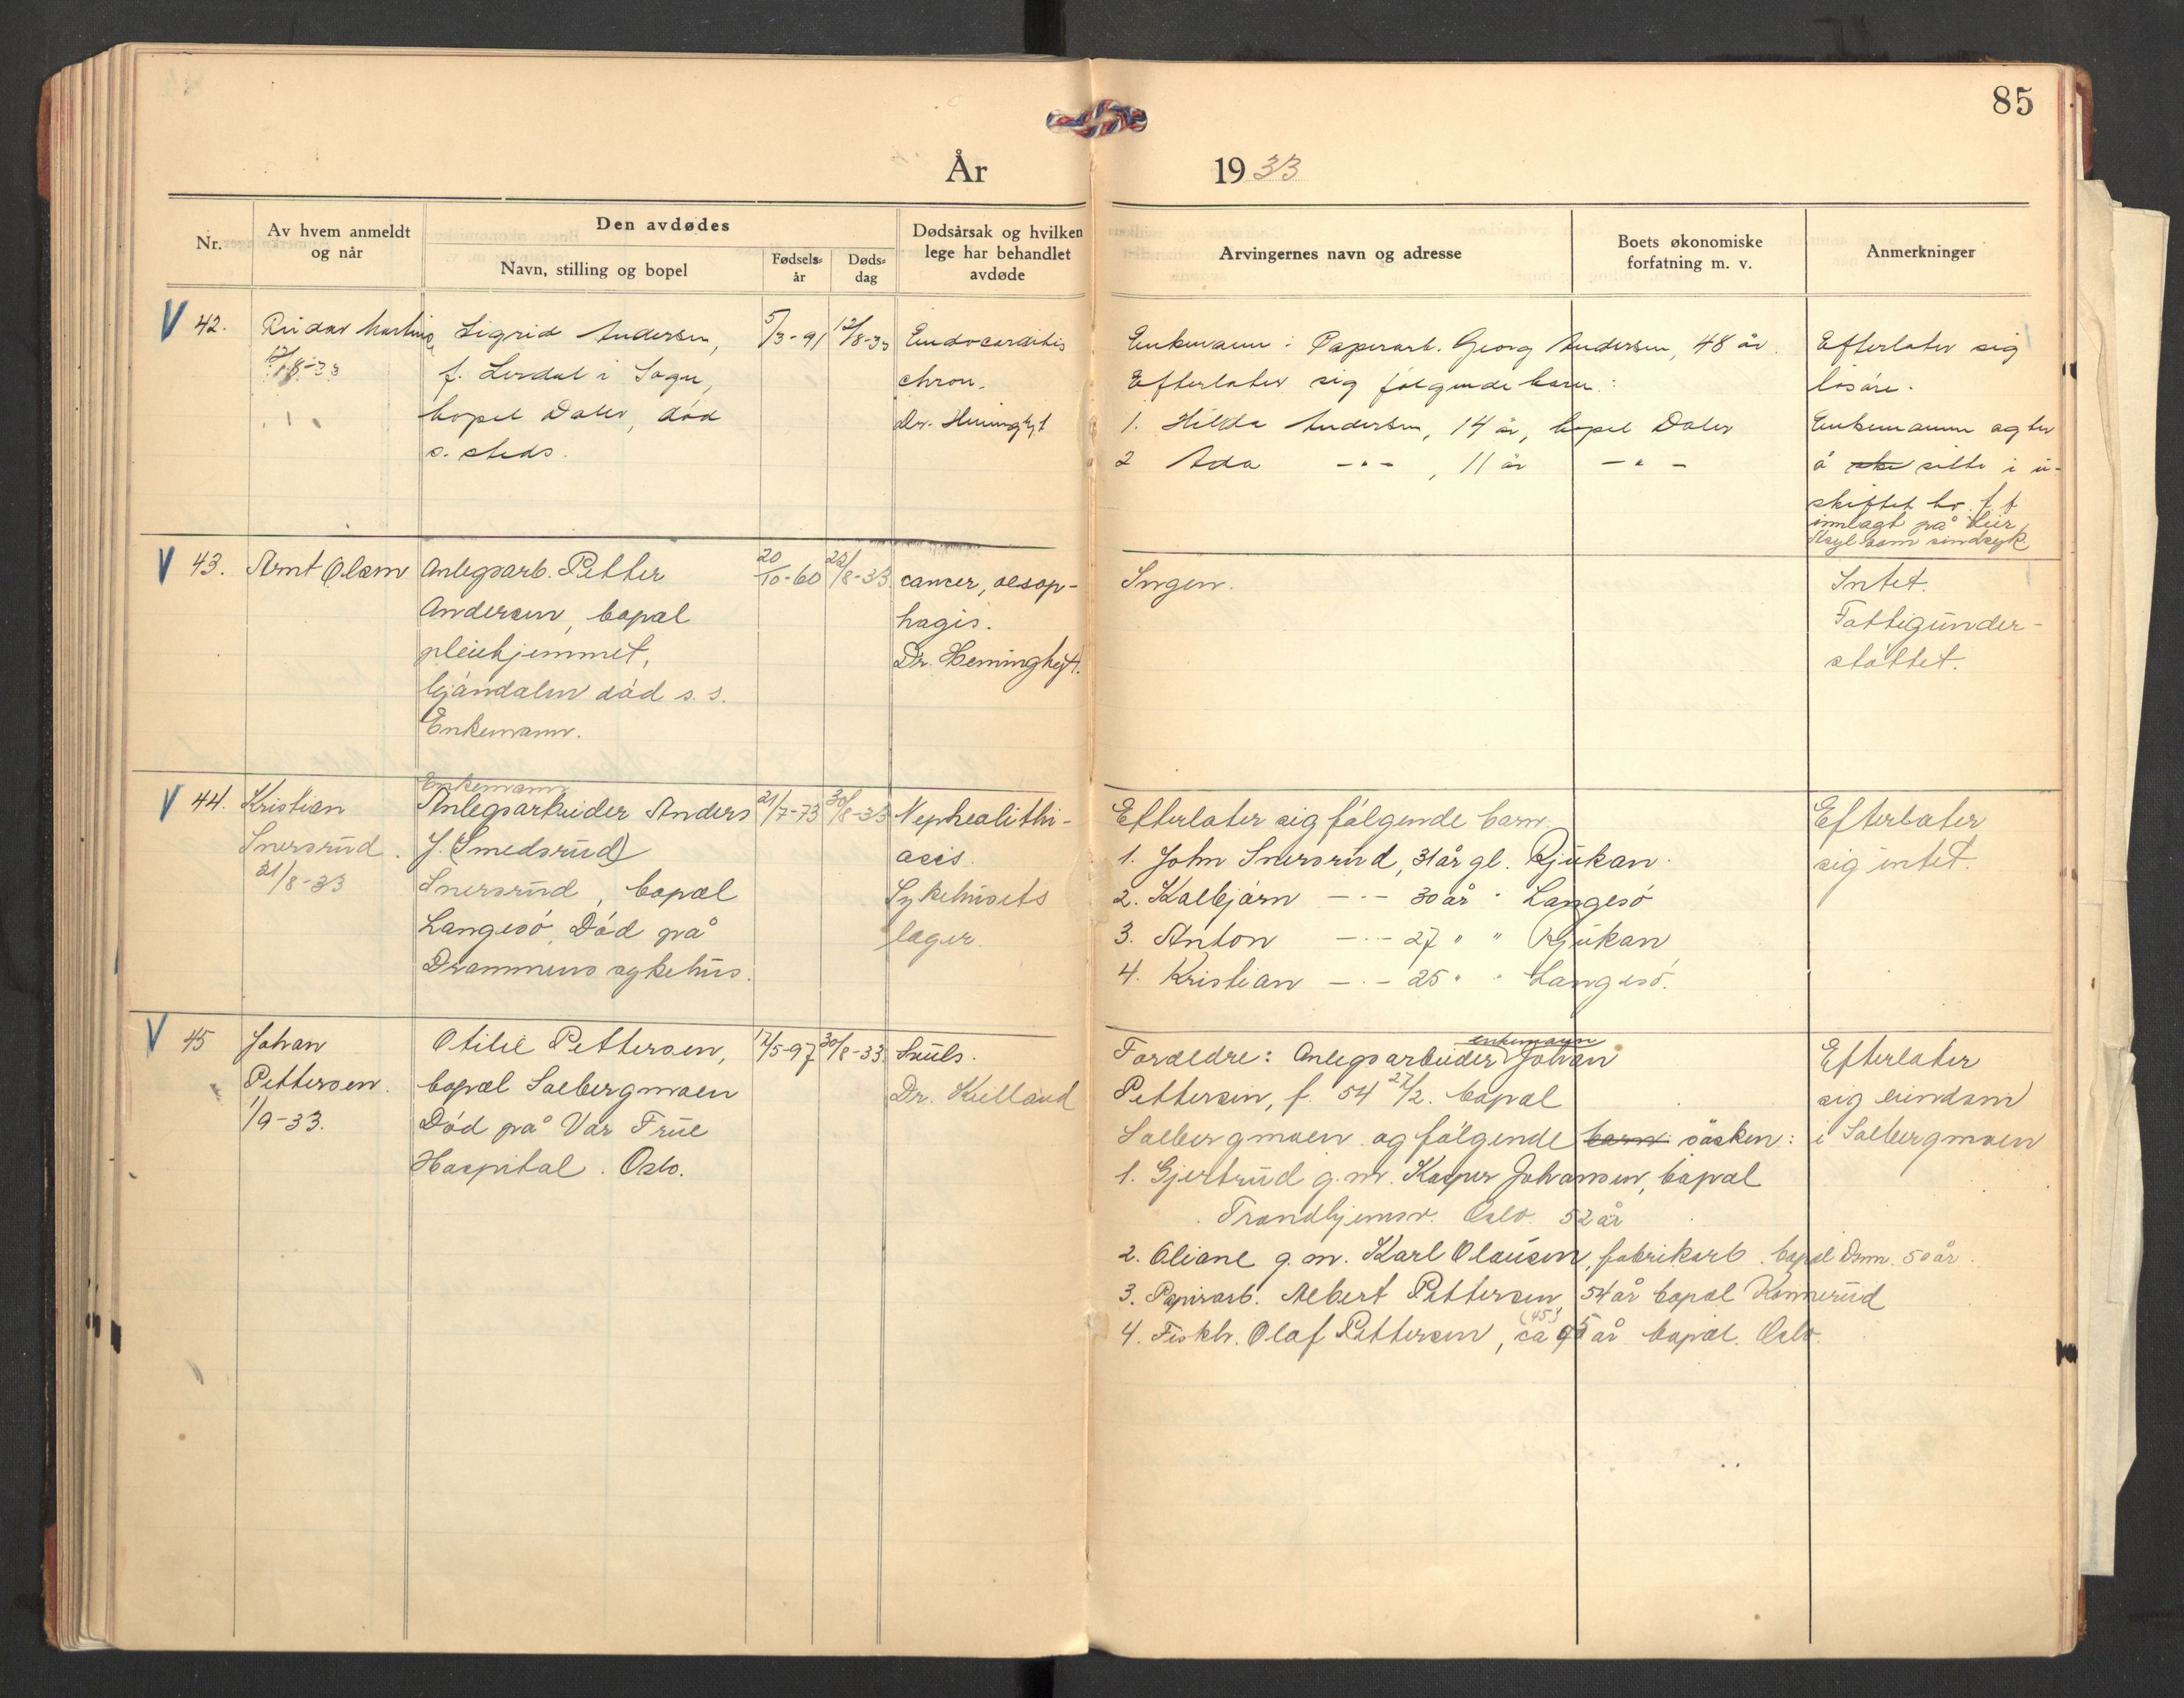 85
År 1933
Nr.
Av hvem anmeldt og når
Den avdødes
Navn, stilling og bopel
Fødsels-år
Døds-dag
Dødsårsak og hvilken lege har behandlet avdøde
Arvingernes navn og adresse
Boets økonomiske forfatning m. v.
Anmerkninger
V 42.
12/8-33
Sigrid Andersen,
f. Lerdal i Sogn,
bopel Daler, død
s. steds.
5/3-91
12/8-33
Endocarditis
chron.
Enkemann: Paperarb. Georg Andersen, 48 år.
Efterlater sig følgende barn:
1. Hilda Andersen, 14 år, bopel Daler
2 Ada -"- , 11 år -"-
Efterlater sig
løsøre.
Enkemann agter
å sitte i u-
skiftet bo. f. t
innlagt på Lier
Asyl som sindsyk
V 43.
Arnt Olsen
Anlegsarb. Petter
Andersen, bopæl
pleiehjemmet,
Mjøndalen død s. s.
Enkemann.
20/10-60
22/8-33
cancer, oesop-
hagis.
Dr. Heminghyt.
Ingen.
Intet.
Fattigunder-
støttet.
V 44.
Kristian
Snersrud.
31/8-33
Enkemann
Anlegsarbeider Anders
J. (Smedsrud)
Snersrud, bopæl
Langesö, Död på
Drammens sykehus.
21/7-73
30/8-33
Nephealithi-
asis.
Sykehusets
læger.
Efterlater sig følgende barn.
1. John Snersrud, 31 år gl. Rjukan.
2. Kolbjørn -"- 30 år " Langesö
3. Anton -"- 27 " " Rjukan
4. Kristian -"- 25 " " Langesö.
Efterlater
sig intet.
V 45
Johan
Pettersen.
1/9-33.
Otilie Pettersen,
bopæl Solbergmoen
Död på Vår Frue
Hospital. Oslo.
17/5-97
30/8-33
Dr. Kielland
Foreldre: Anlegsarbeider enkemann Johan
Pettersen, f. 54 27/2. bopæl
Solbergmoen og følgende barn søsken:
1. Gjertrud g.m. Kasper Johansen, bopæl
Trondhjemsv. Oslo. 52 år
2. Oliane g.m. Karl Olausen, fabrikarb. bopæl Drm. 50 år.
3. Papirarb. Albert Pettersen 54 år bopæl Konnerud
4. Fiskh. Olaf Pettersen, ca (45) 45 år bopæl. Oslo.
Efterlater
sig eiendom
i Solbergmoen